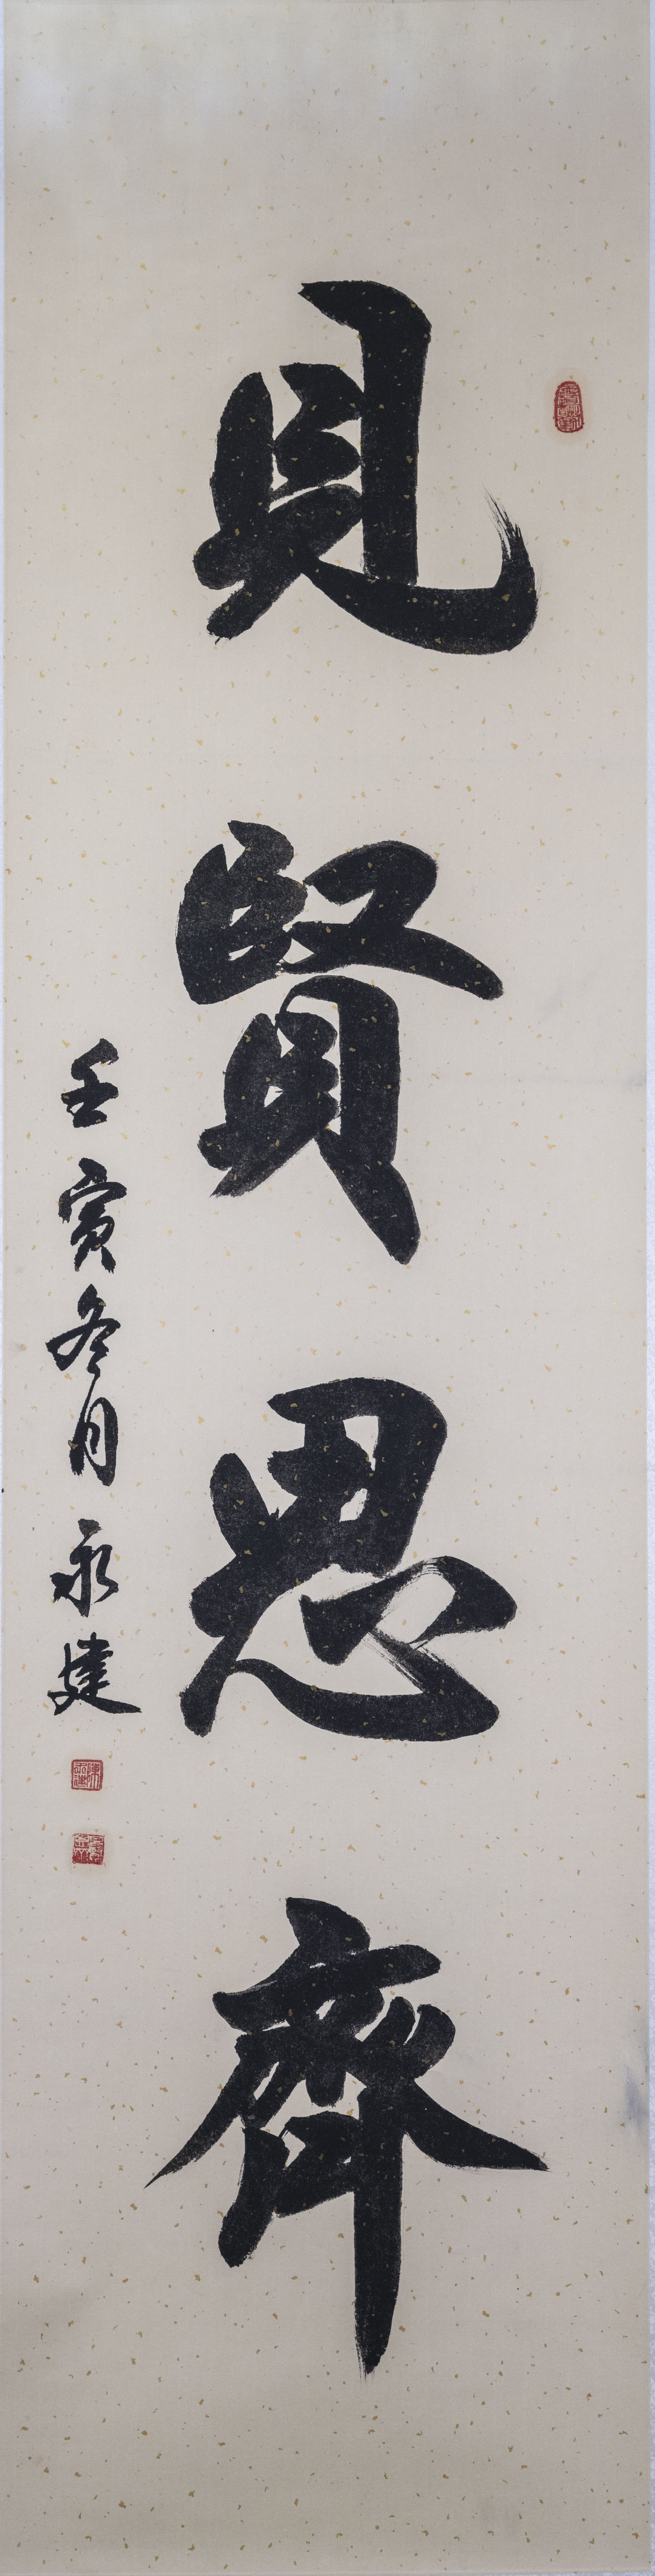 見賢思齊
壬寅冬月 永建